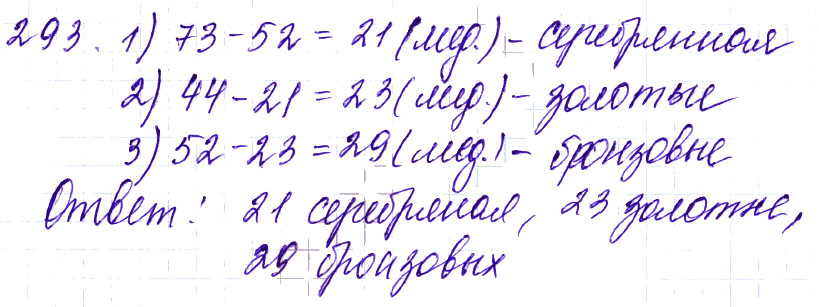 293. 1) 73-52 = 21 (мед.) - серебрянная
2) 44-21 = 23 (мед.) - золотые
3) 52-23 = 29 (мед.) - бронзовые
Ответ: 21 серебряная, 23 золотые,
29 бронзовых